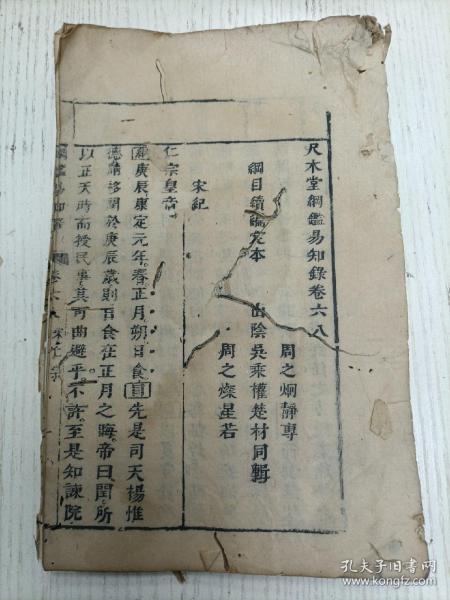 尺木堂綱鑑易知錄卷六八
周之炯靜專
綱目續編定本　山陰吳乘權楚材同輯
周之燦星若
宋紀
仁宗皇帝
綱庚辰康定元年春正月朔日食目先是司天楊惟
德請移閏於庚辰歲則日食在正月之晦帝曰閏所
以正天時而授民事其可曲避乎不許至是知諫院
孔夫子旧书网
www.kongfz.com